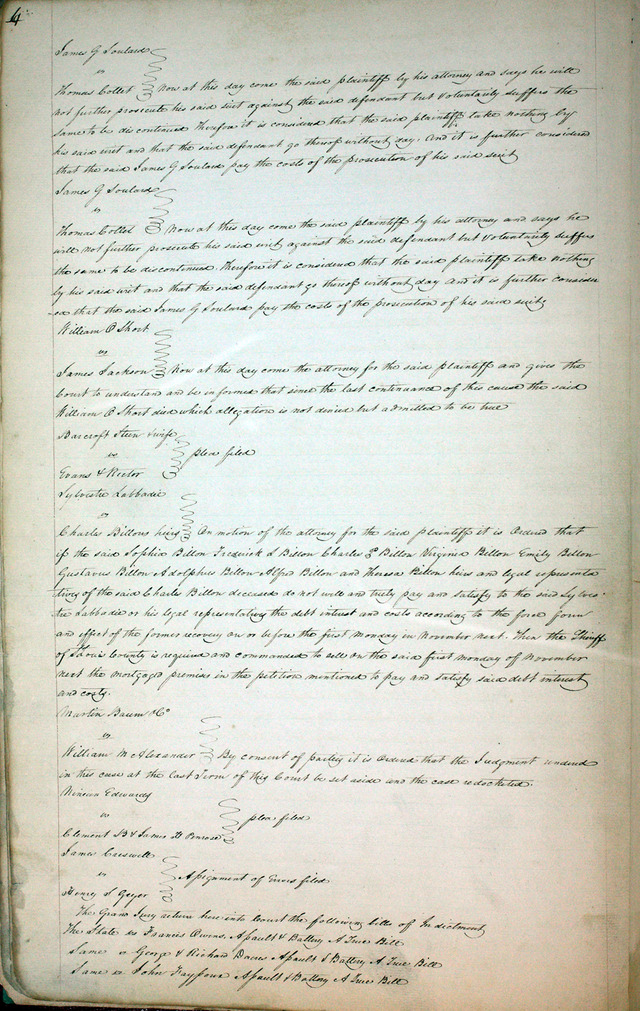 4
James G Soulard
vs
Thomas Collet Now at this day come the said plaintiff by his attorney and says he will
not further prosecute his said suit against the said defendant but voluntarily suffers the
same to be discontinued Therefore it is considered that the said plaintiff take nothing by
his said writ and that the said defendant go thereof without day. And it is further considered
that the said James G Soulard pay the costs of the prosecution of his said suit
James G Soulard
vs
Thomas Collet Now at this day come the said plaintiff by his attorney and says he
will not further prosecute his said suit against the said defendant but voluntarily suffers
the same to be discontinued. Therefore it is considered that the said plaintiff take nothing
by his said writ and that the said defendant go thereof without day And it is further consider
-ed that the said James G Soulard pay the costs of the prosecution of his said suit
William O Short
vs
James Jackson Now at this day come the attorney for the said plaintiff and gives the
Court to understand and be informed that since the last continuance of this cause the said
William O Short died which allegation is not denied but admitted to be true
Barcroft Steen & wife
vs plea filed
Evans & Rector
Sylvestre Labbadie
vs
Charles Billons heirs On motion of the attorney for the said plaintiff it is Ordered that
if the said Sophia Billon Frederick L Billon Charles Billon Virginia Billon Emily Billon
Gustavus Billon Adolphus Billon Alfred Billon and Theresa Billon heirs and legal representa
tives of the said Charles Billon deceased do not well and truly pay and satisfy to the said Sylves
tre Labbadie or his legal representatives the debt interest and costs according to the force form
and effect of the former recovery on or before the first Monday in November next. Then the Sheriff
of St Louis County is required and commanded to sell on the said first monday of November
next the mortgaged premises in the petition mentioned to pay and satisfy said debt interest
and costs.
Martin Baum & Co
vs
William McAlexander By consent of parties it is Ordered that the Judgment rendered
in this case at the last Term of this Court be set aside and the case redocketed.
Ninian Edwards
vs plea filed
Clement B & James H Penrose
James Creswell
vs Assignment of Errors filed
Henry S Geyer
The Grand Jury return here into Court the following bills of Indictment
The State vs Francis Owens Assault & Battery A True Bill
Same vs George & Richard Davies Assault & Battery A True Bill
Same vs John Assault & Battery A True Bill